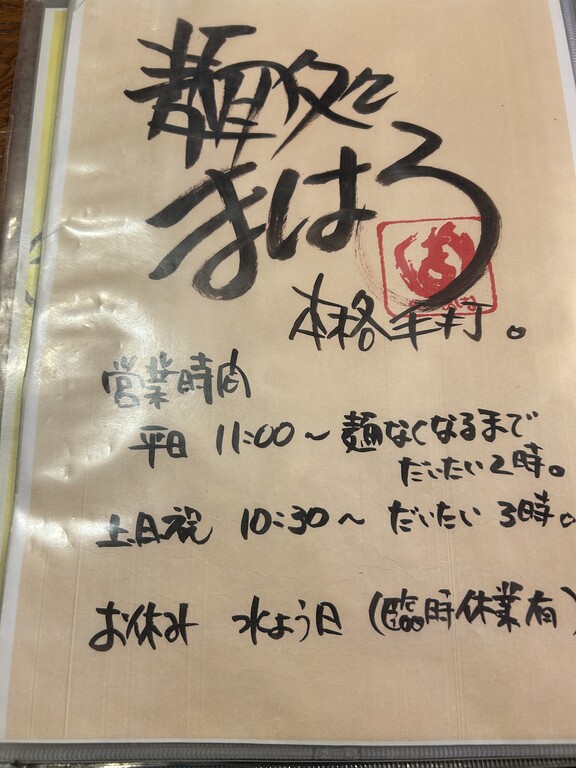 麺処
まはろ
本格手打。
営業時間
平日 11:00～麺なくなるまで
だいたい2時。
土日祝 10:30～だいたい3時。
お休み 水よう日(臨時休業有)